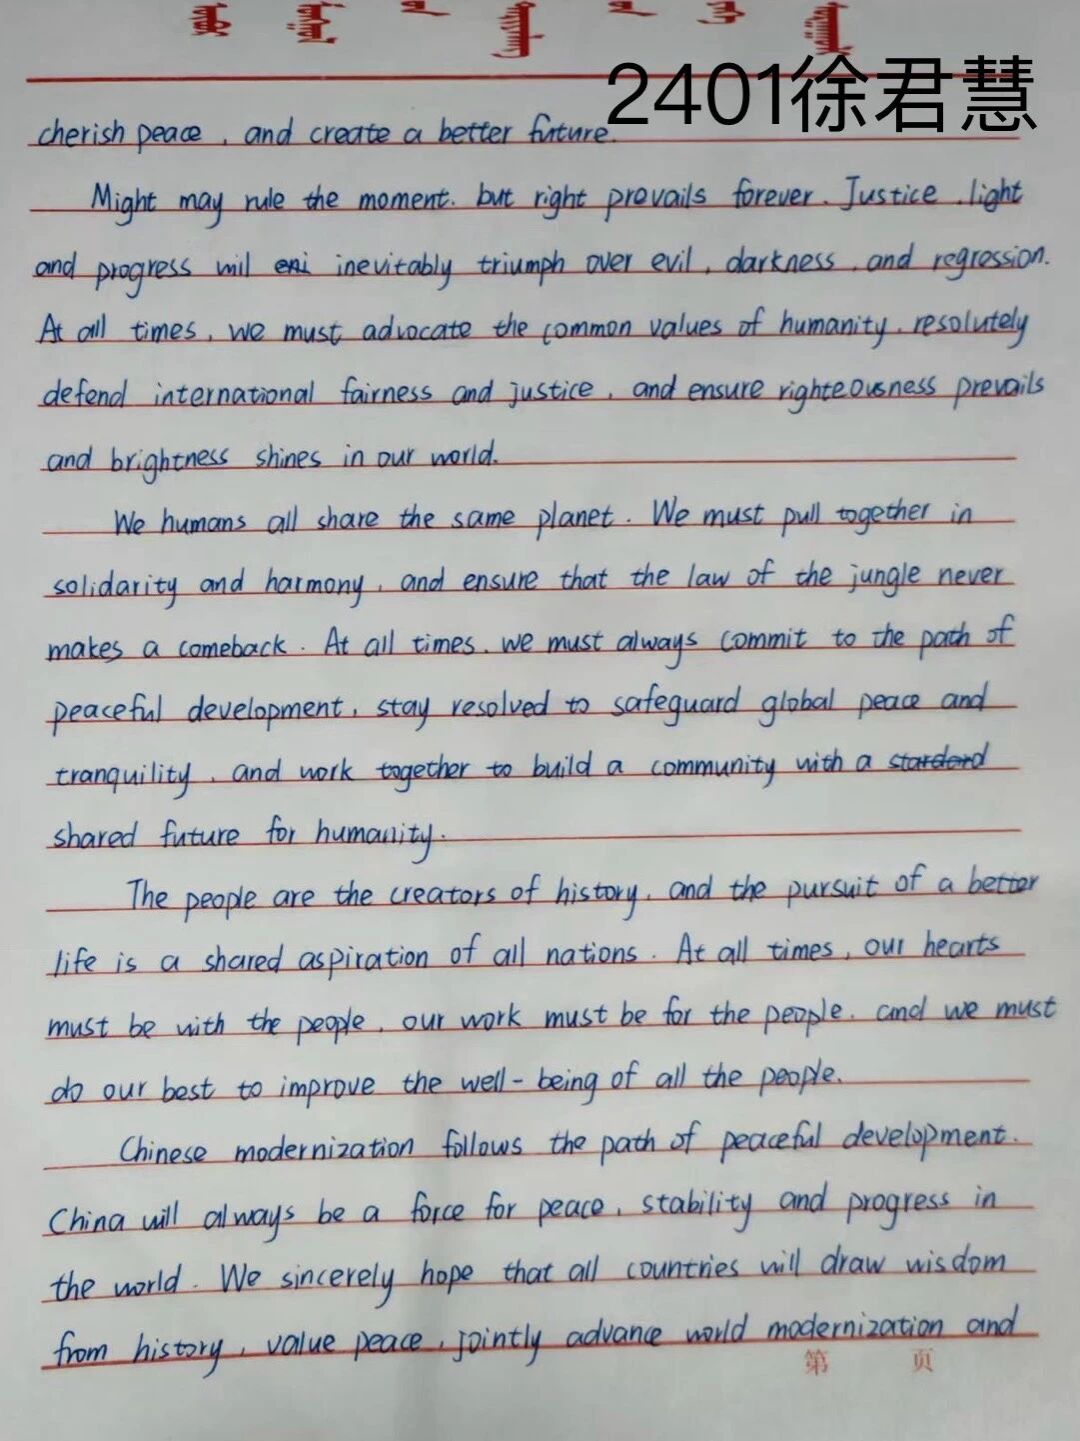 2401徐君慧
cherish peace, and create a better future.
Might may rule the moment. but right prevails forever. Justice, light
and progress will eni inevitably triumph over evil, darkness, and regression.
At all times, we must advocate the common values of humanity, resolutely
defend international fairness and justice, and ensure righteousness prevails
and brightness shines in our world.
We humans all share the same planet. We must pull together in
solidarity and harmony, and ensure that the law of the jungle never
makes a comeback. At all times, we must always commit to the path of
peaceful development, stay resolved to safeguard global peace and
tranquility, and work together to build a community with a stardard
shared future for humanity.
The people are the creators of history, and the pursuit of a better
life is a shared aspiration of all nations. At all times, our hearts
must be with the people, our work must be for the people. and we must
do our best to improve the well-being of all the people.
Chinese modernization follows the path of peaceful development.
China will always be a force for peace, stability and progress in
the world. We sincerely hope that all countries will draw wisdom
from history, value peace, jointly advance world modernization and
第 页